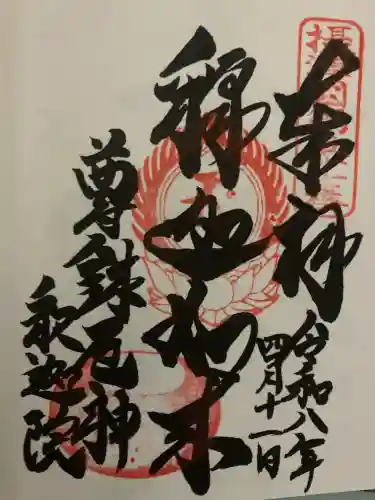 奉拝
令和八年
四月十一日
釈迦如来
尊鉢厄神
釈迦院